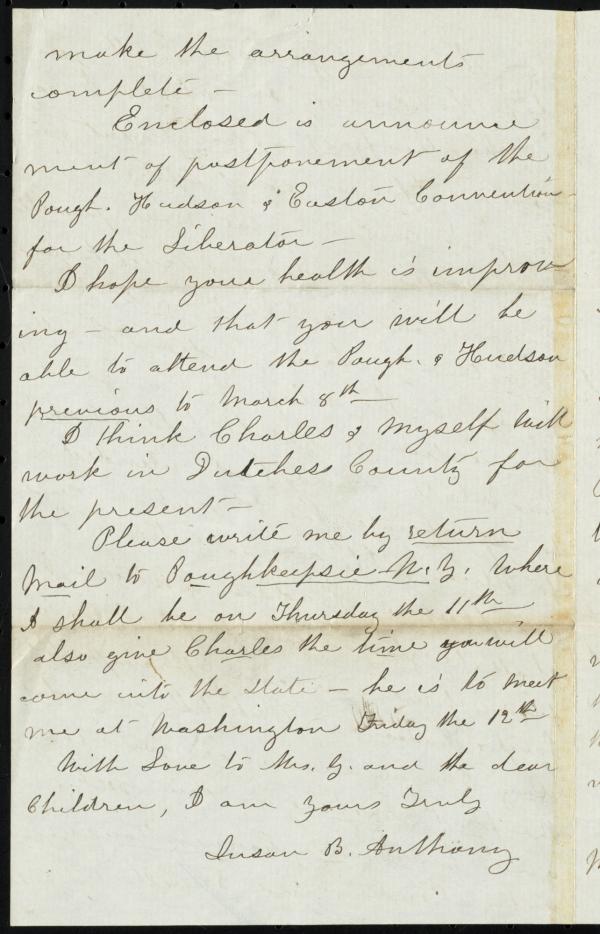 make the arrangements
complete –
Enclosed is announce
ment of postponement of the
Pough. Hudson & Easton Convention
for the Liberator –
I hope your health is improv
ing – and that you will be
able to attend the Pough. & Hudson
previous to March 8th –
I think Charles & myself will
work in Dutchess County for
the present –
Please write me by return
Mail to Poughkeepsie N.Y. Where
I shall be on Thursday the 11th –
also give Charles the time you will
come into the State – he is to meet
me at Washington Friday the 12th
With Love to Mrs. G. and the dear
Children, I am yours Truly
Susan B. Anthony